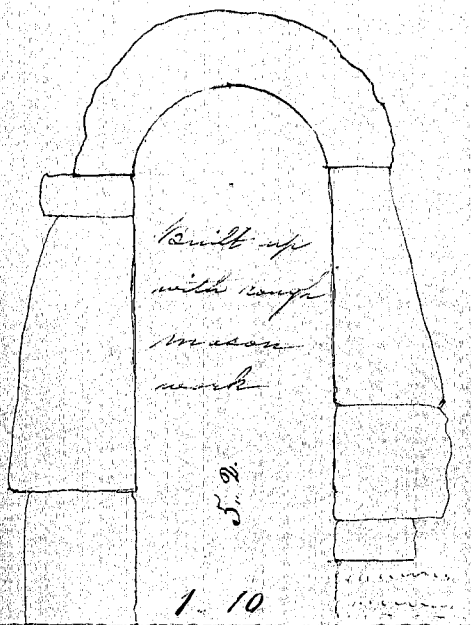 Built up
with rough
mason
work
5.. 2
1.. 10